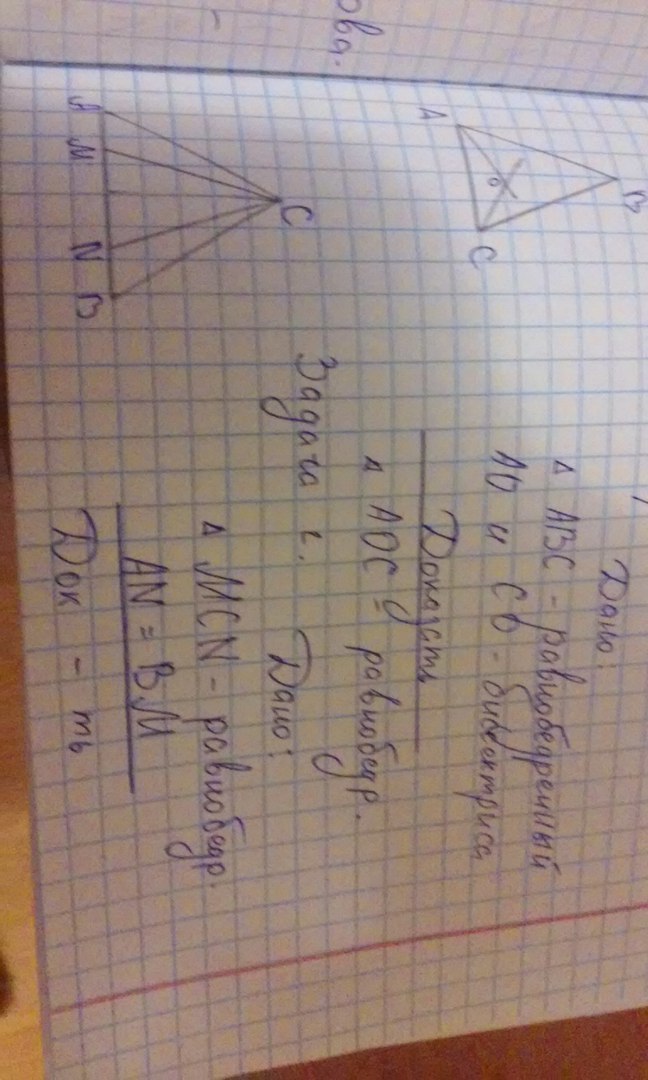 ова.
Дано:
Δ ABC - равнобедренный
AO и CO - биссектриса
Доказать
Δ AOC = равнобедр.
A
B
C
o
Задача 2. Дано:
Δ MCN - равнобедр.
AN = BM
Док - ть
C
A
M
N
B